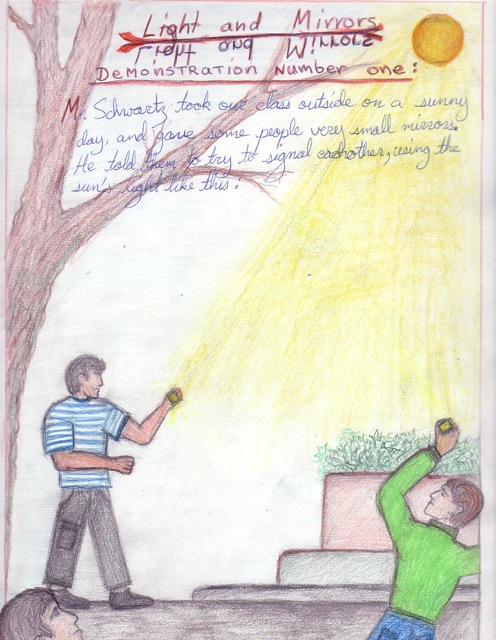 Light and Mirrors
Light and Mirrors
Demonstration Number one:
Mr. Schwartz took our class outside on a sunny
day, and gave some people very small mirrors.
He told them to try to signal eachother, using the
sun's light like this: